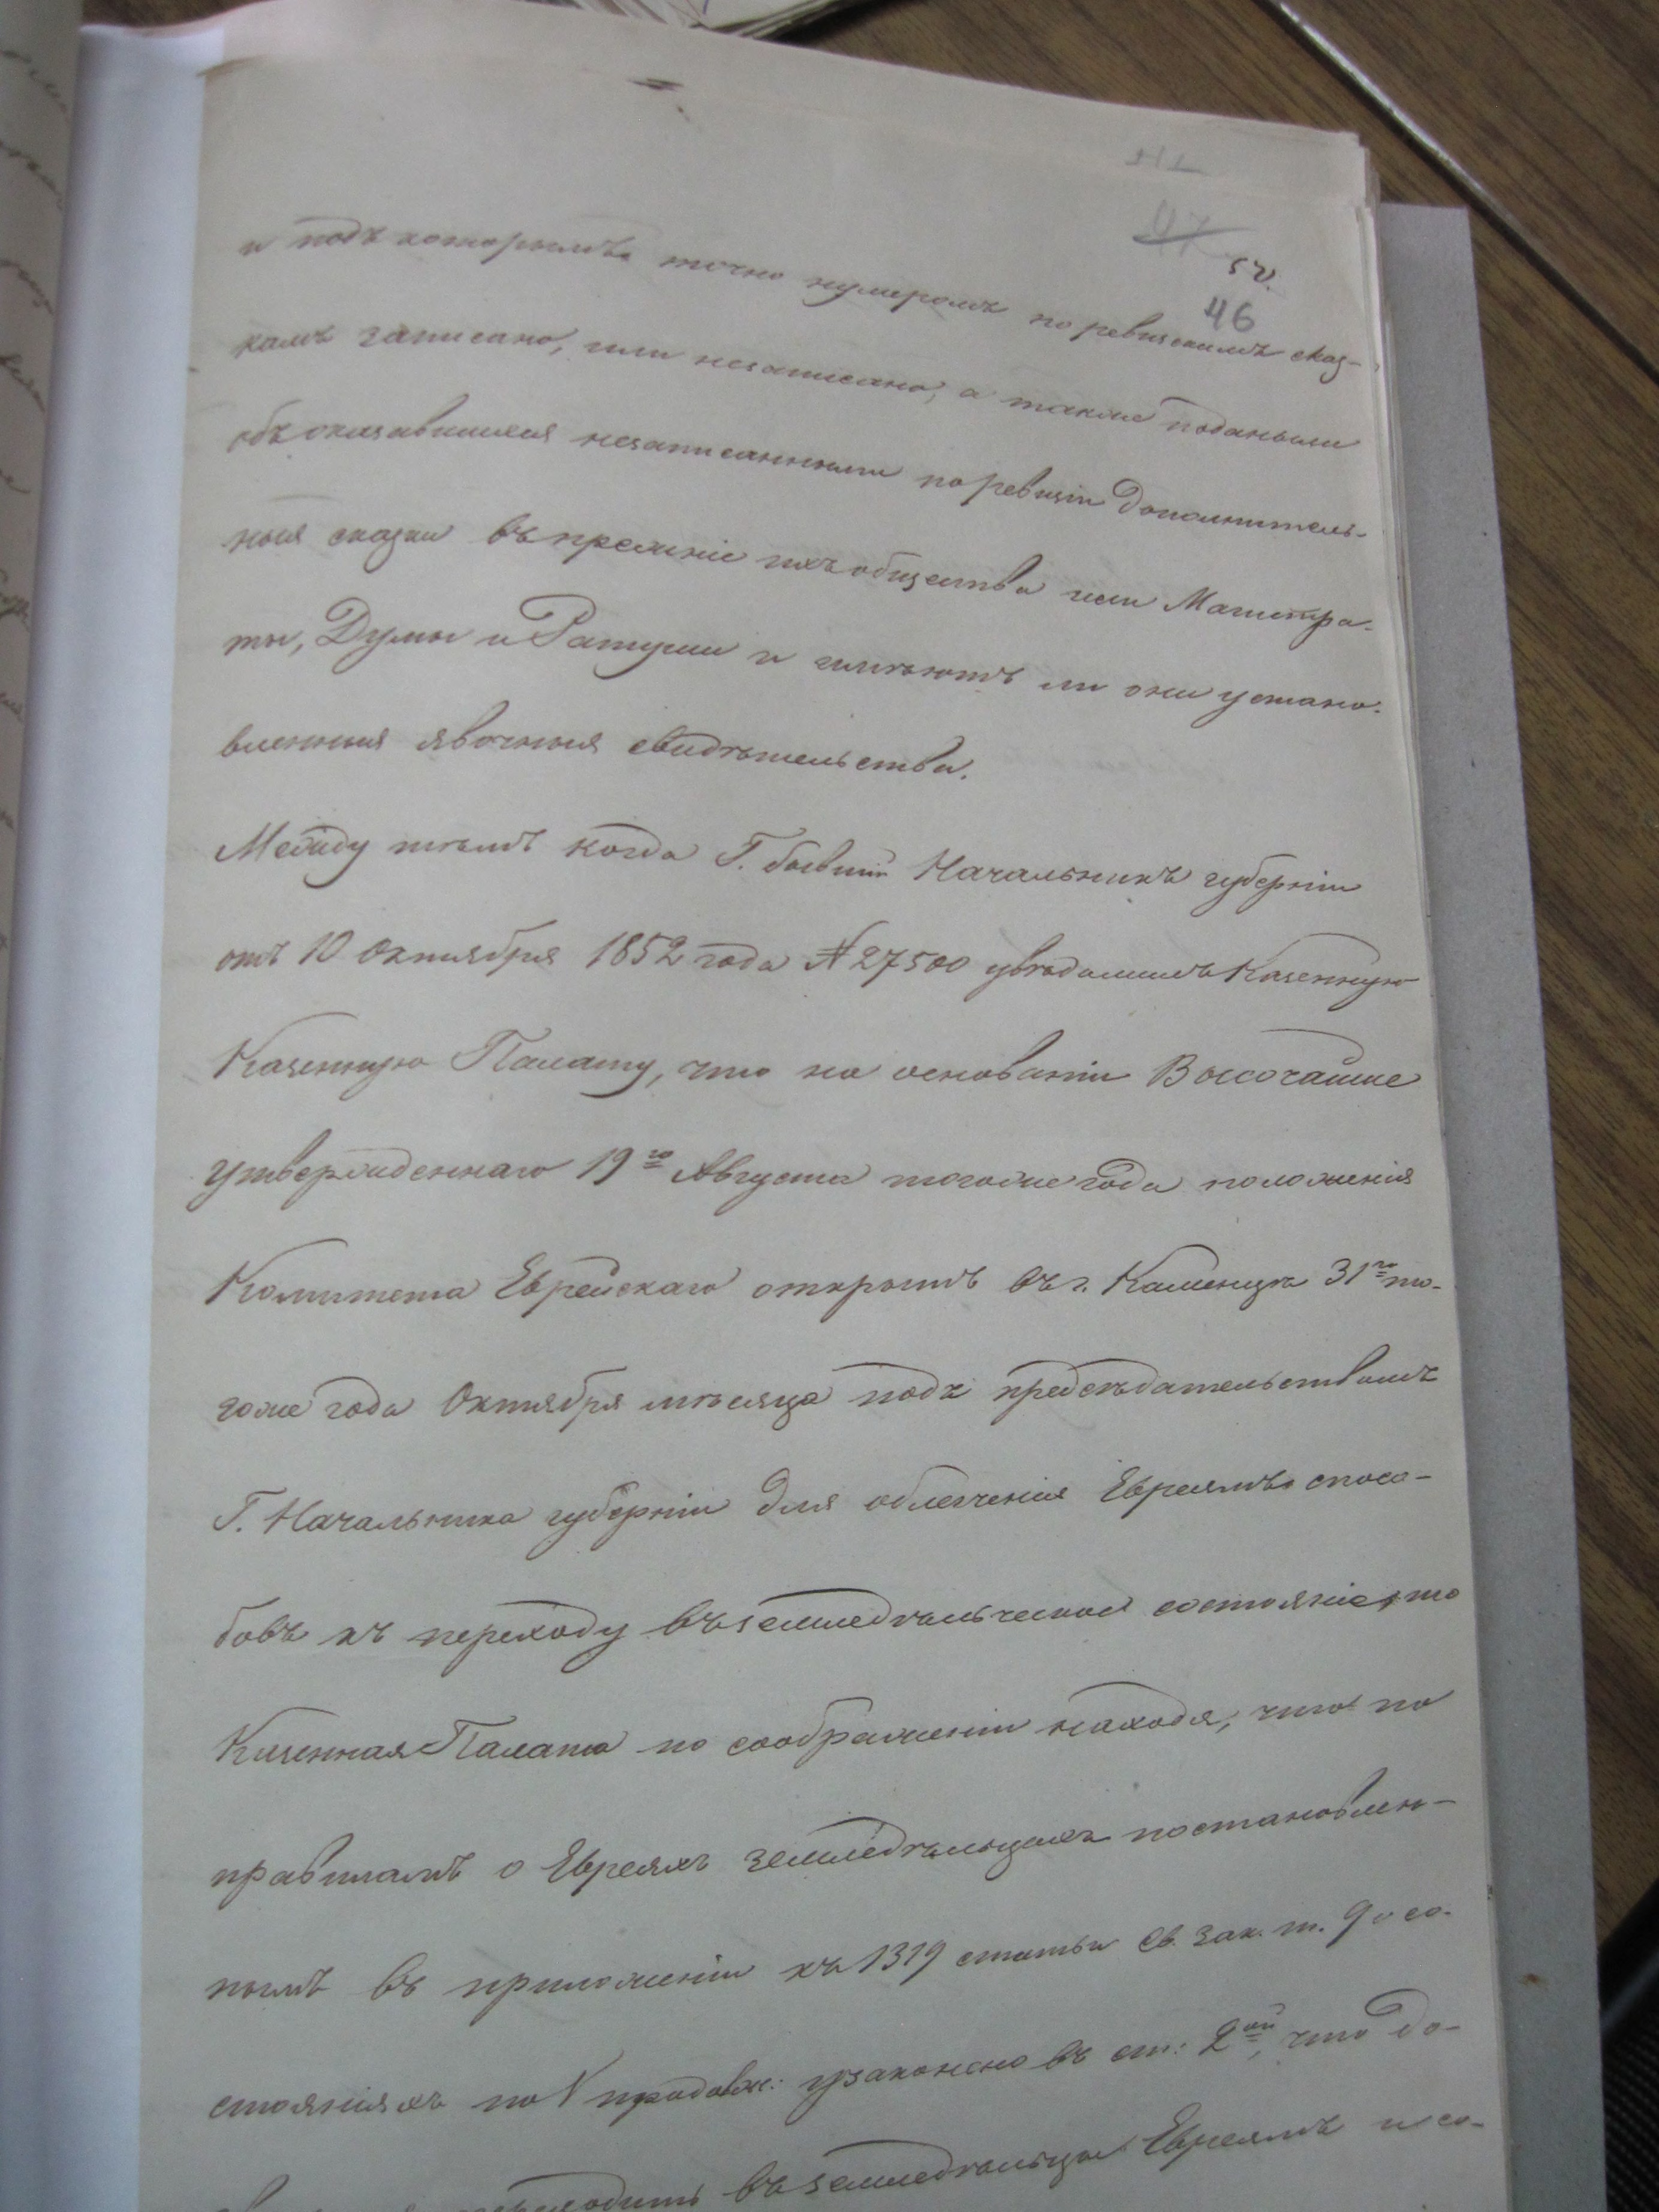 47
46
и подъ которымъ точно нумеромъ по ревизскимъ сказ-
камъ записано, или незаписано, а также поданы ли
объ оказавшихся незаписанными по ревизіи дополнитель-
ныя сказки въ прежніе ихъ общества или Магистра-
ты, Думы и Ратуши и имѣютъ ли они устано-
вленныя явочныя свидѣтельства.
Между тѣмъ когда Г. бывшій Начальникъ губерніи
отъ 10 Октября 1852 года № 27500 увѣдомилъ Казенную
Казенную Палату, что на основаніи Высочайше
утвержденнаго 19го Августа того же года положенія
Комитета Еврейскаго открытъ въ г. Каменцѣ 31го то-
гоже года Октября мѣсяца подъ предсѣдательствомъ
Г. Начальника губерніи для облегченія Евреямъ спосо-
бовъ къ переходу въ земледѣльческое состояніе, то
Казенная Палата по соображеніи находя, что по
правиламъ о Евреяхъ земледѣльцахъ постановлен-
нымъ въ приложеніи къ 1319 статьи Св. Зак. т. 9 о со-
стояніяхъ по V продолж: узаконено въ ст: 2ой, что до-
въ земледѣльцы Евреямъ и со-